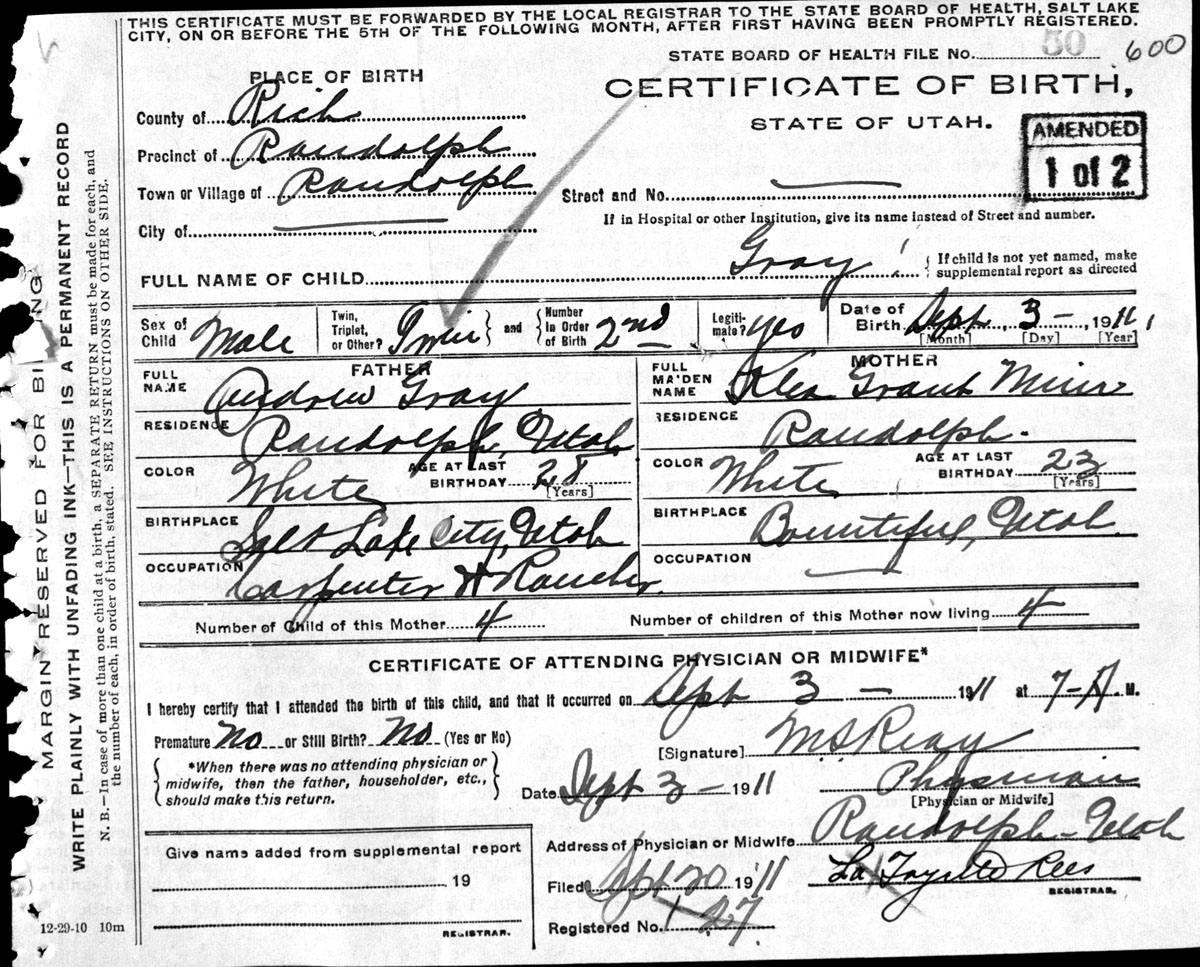 THIS CERTIFICATE MUST BE FORWARDED BY THE LOCAL REGISTRAR TO THE STATE BOARD OF HEALTH, SALT LAKE
CITY, ON OR BEFORE THE 5TH OF THE FOLLOWING MONTH, AFTER FIRST HAVING BEEN PROMPTLY REGISTERED.
STATE BOARD OF HEALTH FILE No. 50 600
PLACE OF BIRTH
CERTIFICATE OF BIRTH,
STATE OF UTAH.
AMENDED
1 of 2
County of Rich
Precinct of Randolph
Town or Village of Randolph
Street and No.
If in Hospital or other Institution, give its name instead of Street and number.
City of
FULL NAME OF CHILD Gray { If child is not yet named, make
supplemental report as directed
Sex of Child Male
Twin, Triplet, or Other? Twin } and { Number In Order of Birth 2nd
Legitimate? Yes
Date of Birth Sept 3 - 1911,
[Month] [Day] [Year]
FATHER
FULL NAME Andrew Gray
RESIDENCE Randolph, Utah
COLOR White AGE AT LAST BIRTHDAY 28
[Years]
BIRTHPLACE Salt Lake City, Utah
OCCUPATION Carpenter & Rancher
MOTHER
FULL MAIDEN NAME Grant
RESIDENCE Randolph.
COLOR White AGE AT LAST BIRTHDAY 23
[Years]
BIRTHPLACE Bountiful, Utah
OCCUPATION
Number of Child of this Mother 4 Number of children of this Mother now living 4
CERTIFICATE OF ATTENDING PHYSICIAN OR MIDWIFE*
I hereby certify that I attended the birth of this child, and that it occurred on Sept 3 - 1911 at 7-A. M.
Premature No or Still Birth? No (Yes or No)
[Signature]
{ *When there was no attending physician or
midwife, then the father, householder, etc.,
should make this return. }
Date Sept 3 - 1911 Physician
[Physician or Midwife]
Address of Physician or Midwife Randolph - Utah
Filed Sept 20 1911 La Fayette Rees
REGISTRAR.
Registered No. 27
Give name added from supplemental report
19
REGISTRAR.
12-29-10 10m
MARGIN RESERVED FOR BINDING
WRITE PLAINLY WITH UNFADING INK—THIS IS A PERMANENT RECORD
N. B.—In case of more than one child at a birth, a SEPARATE RETURN must be made for each, and
the number of each, in order of birth, stated. SEE INSTRUCTIONS ON OTHER SIDE.